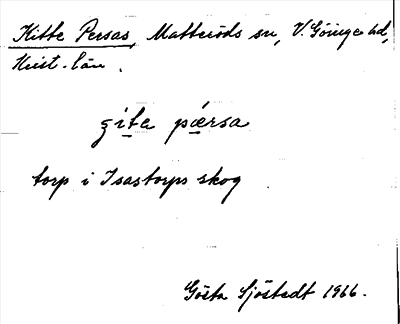 Kitte Persas, Matteröds sn, V. Göinge hd,
Krist. län.
gíta pǽrsa
torp i Isastorps skog
Gösta Sjöstedt 1966.